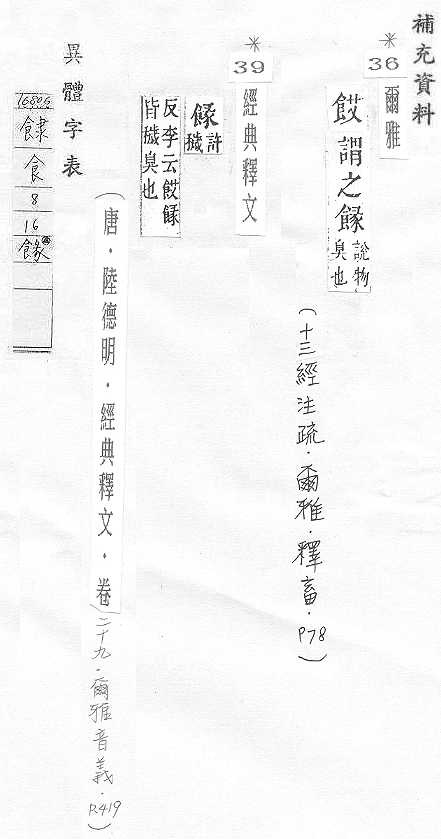 補充資料
*
36
爾雅
餀謂之餯
說物
臭也
(十三經注疏.爾雅.釋畜.P78)
*
39
經典釋文
餯
許
穢
反李云餀餯
皆穢臭也
(唐.陸德明.經典釋文.卷二十九.爾雅音義.P.419)
異體字表
食
8
16
餯